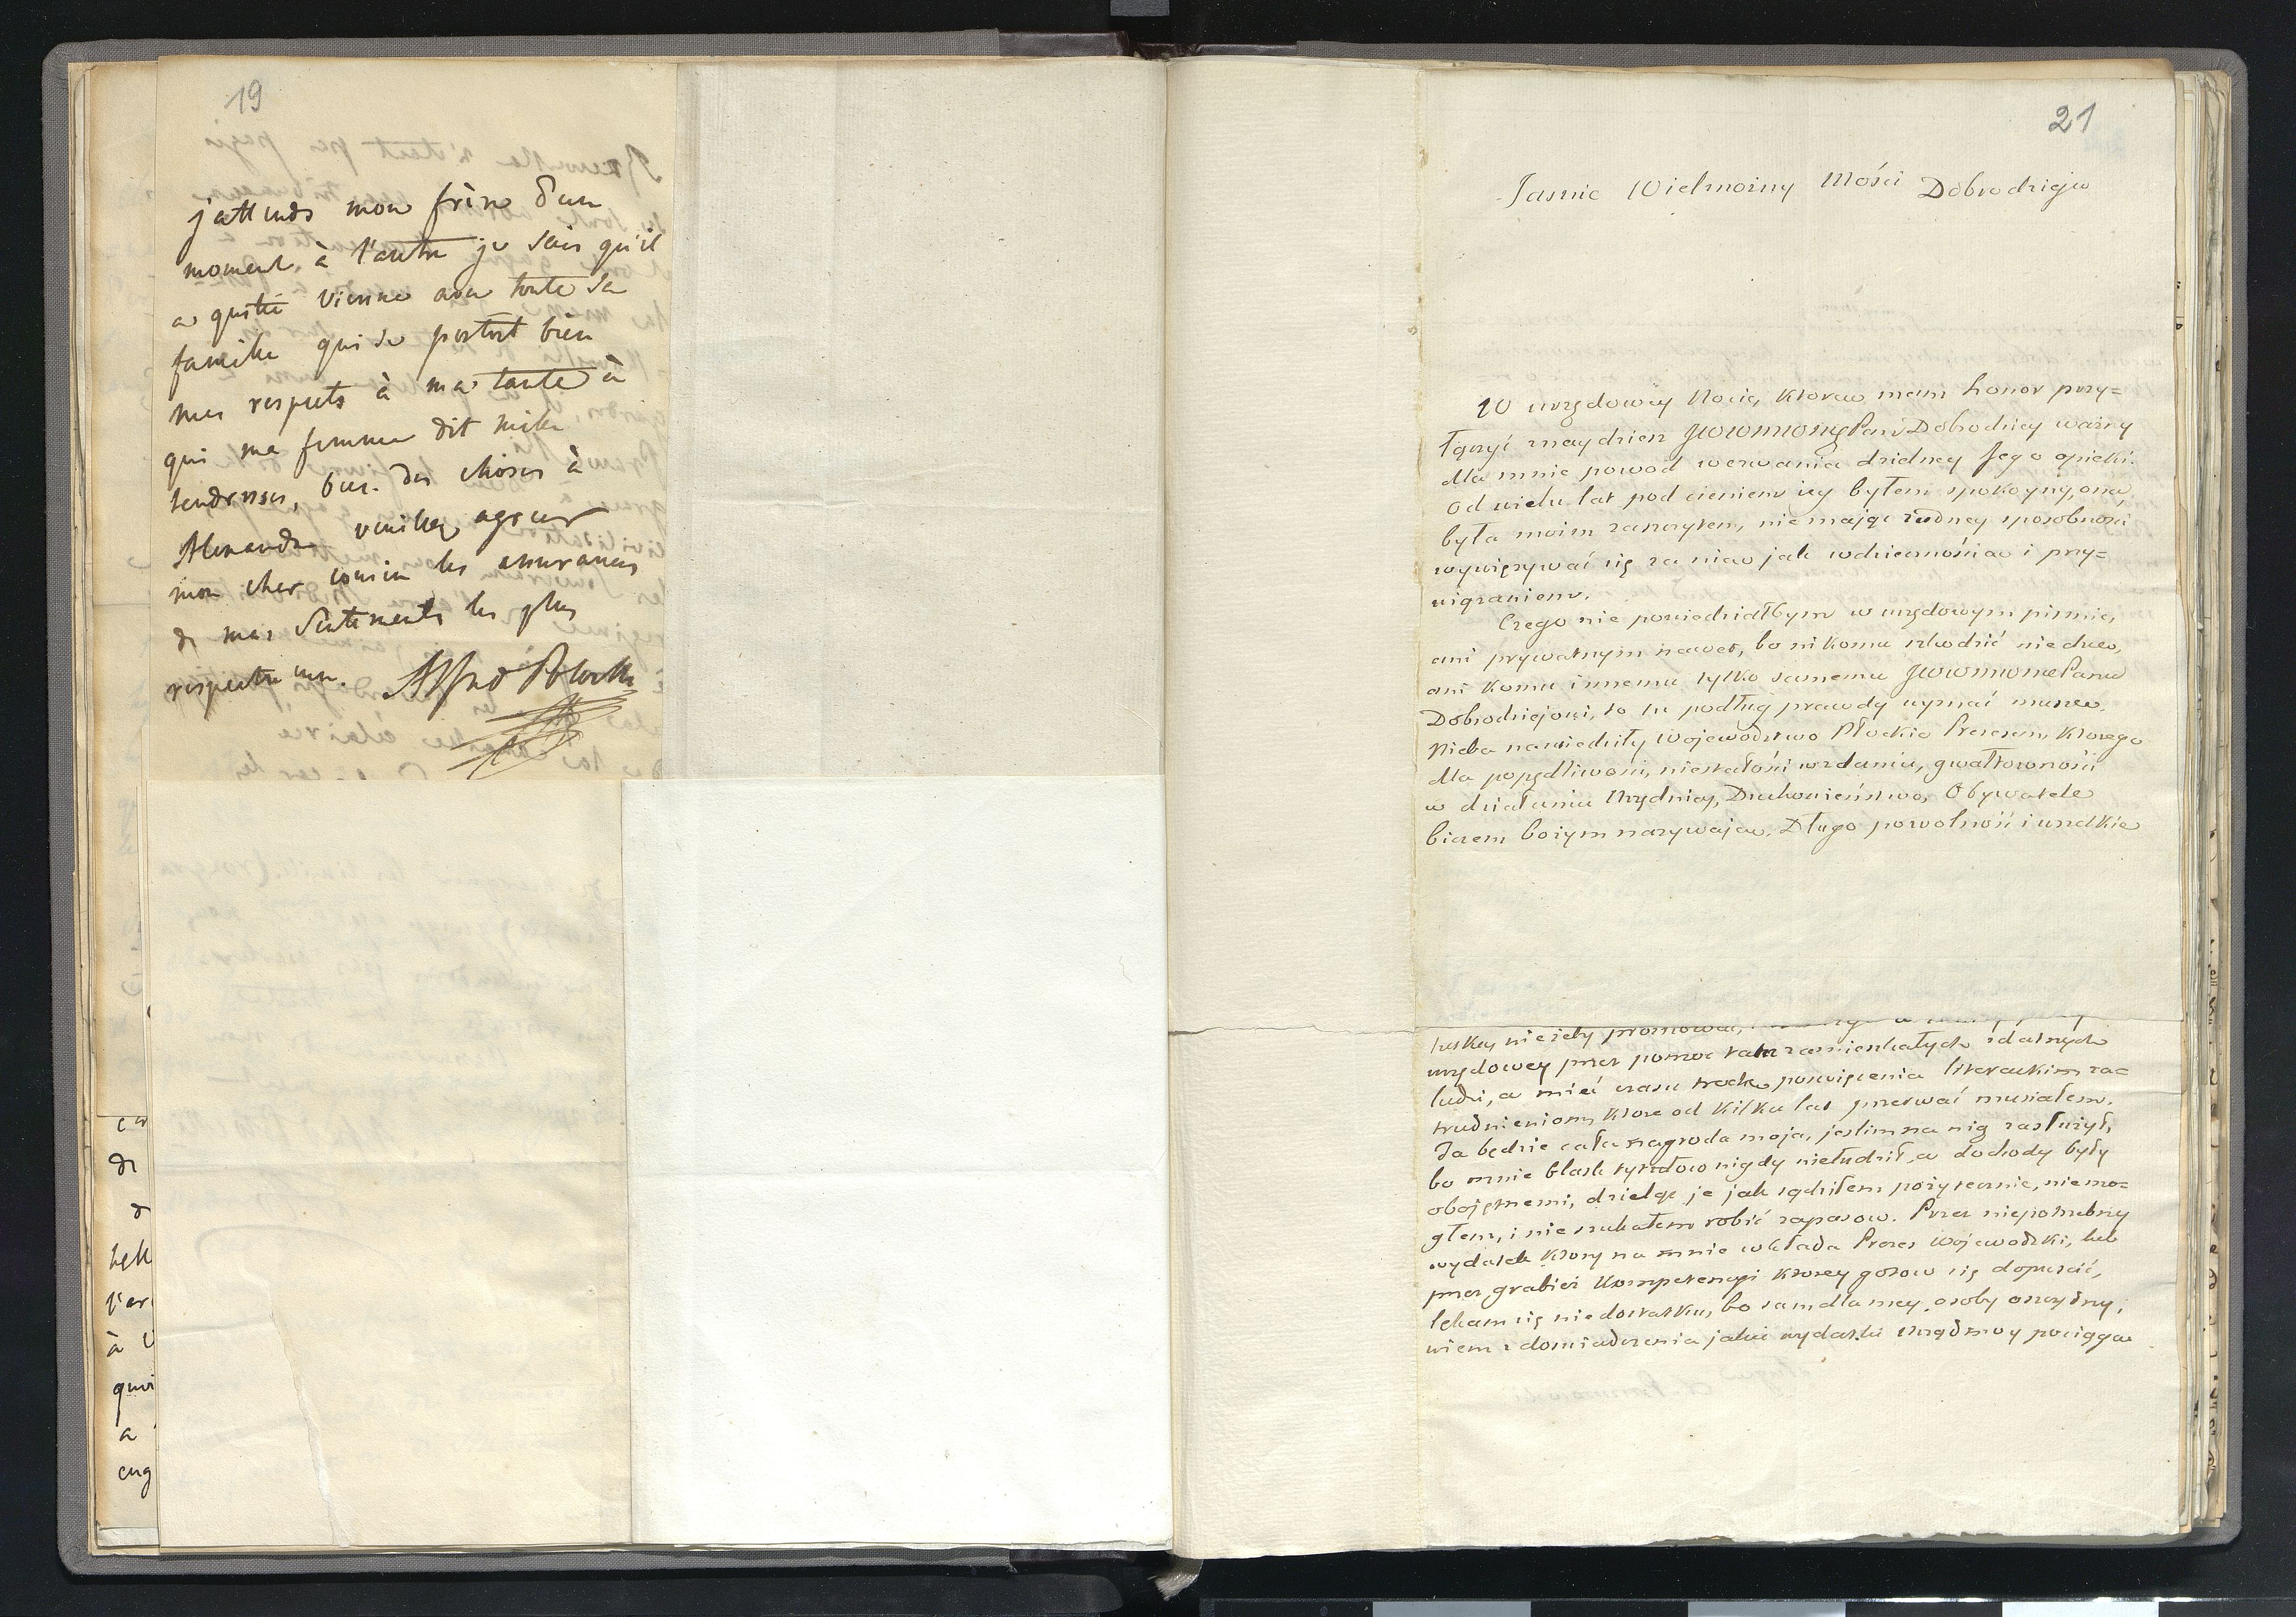 19
j'attends mon frère d'un
moment à l'autre je sais qu'il
a quitté Vienne avec toute sa
famille qui se portent bien
mes respects à ma tante à
qui ma femme dit mille
tendresses, bien des choses à
Alexandre veuillez agréer
mon cher cousin les assurances
de mes sentiments les plus
respectueux. Alfred Potocki
21
Jasnie Wielmożny Mości Dobrodzieju
W urzędowey Nocie, ktorą mam honor przy=
łączyć znaydziesz JWWMość Pan Dobrodziey ważny
dla mnie powod wezwania dzielney Jego opieki.
Od wielu lat pod cieniem iey byłem spokoyny, ona
była moim zaszczytem, nie mając żadney sposobności
wywięzywać się za nią jak wdzięcznością i przy=
wiązaniem.
Czego nie powiedziałbym w urzędowym pismie,
ani prywatnym nawet, bo nikomu szkodzić nie chcę,
ani komu innemu tylko samemu JWWMość Panu
Dobrodziejowi, to tu podług prawdy wyznać muszę.
Nieba nawiedziły Wojewodztwo Płockie Prezesem, ktorego
dla popędliwosci, niestałości w zdaniu, gwałtowności
w działaniu Urzędnicy, Duchowieństwo, Obywatele
biczem bożym nazywają. Długo powolność i wszelkie
urzędowey przez pomoc tak zamieszkałych zdatnych
ludzi, a mieć czasu trochę poswięcenia literackim za=
trudnieniom, ktore od kilku lat przerwać musiałem.
Ta będzie cała nagroda moja, jeslim na nię zasłużył,
bo mnie blask tytułow nigdy niełudził, a dochody były
obojętnemi, dzieląc je jak sądziłem pożytecznie, niemo=
głem, i nie szukałem robić zapasow. Przez niepotrzebny
wydatek ktory na mnie wkłada Prezes Wojewodzki, lub
przez grabież kompetencyi ktorey gotow się dopuscić,
lękam się niedostatku, bo sam dla mey osoby oszczędny,
wiem z doswiadczenia jakie wydatki Urząd moy pociąga